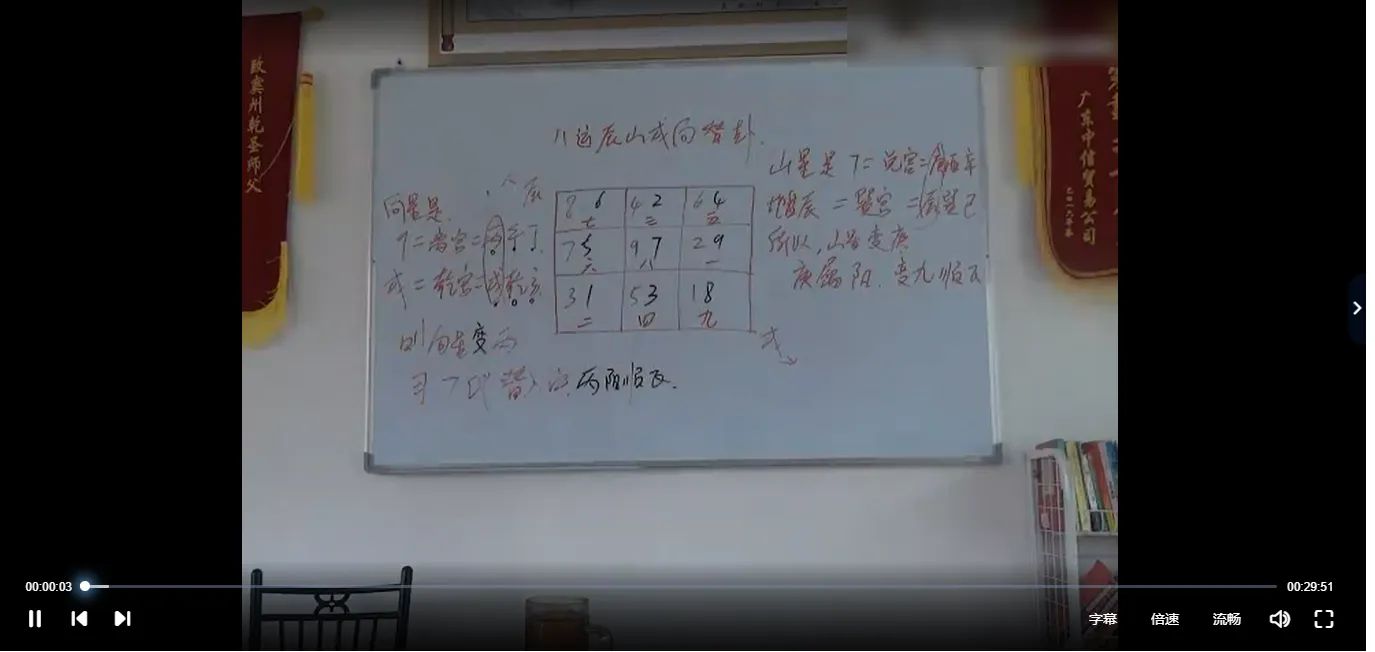 致
州乾圣师父
广东中信贸易公司
二〇一六年冬
八运辰山戌向替卦.
山星是7=兑宫=庚酉辛
地盘辰=巽宫=辰巽巳
所以,山星变庚
庚属阳.变九顺飞
向星是
9=离宫=丙午丁
戌=乾宫=戌乾亥
则向星变丙
丙阳顺飞.
辰
8 6 七
4 2 三
6 4 五
7 5 六
9 7 八
2 9 一
3 1 二
5 3 四
1 8 九
戌
00:00:03
00:29:51
字幕
倍速
流畅